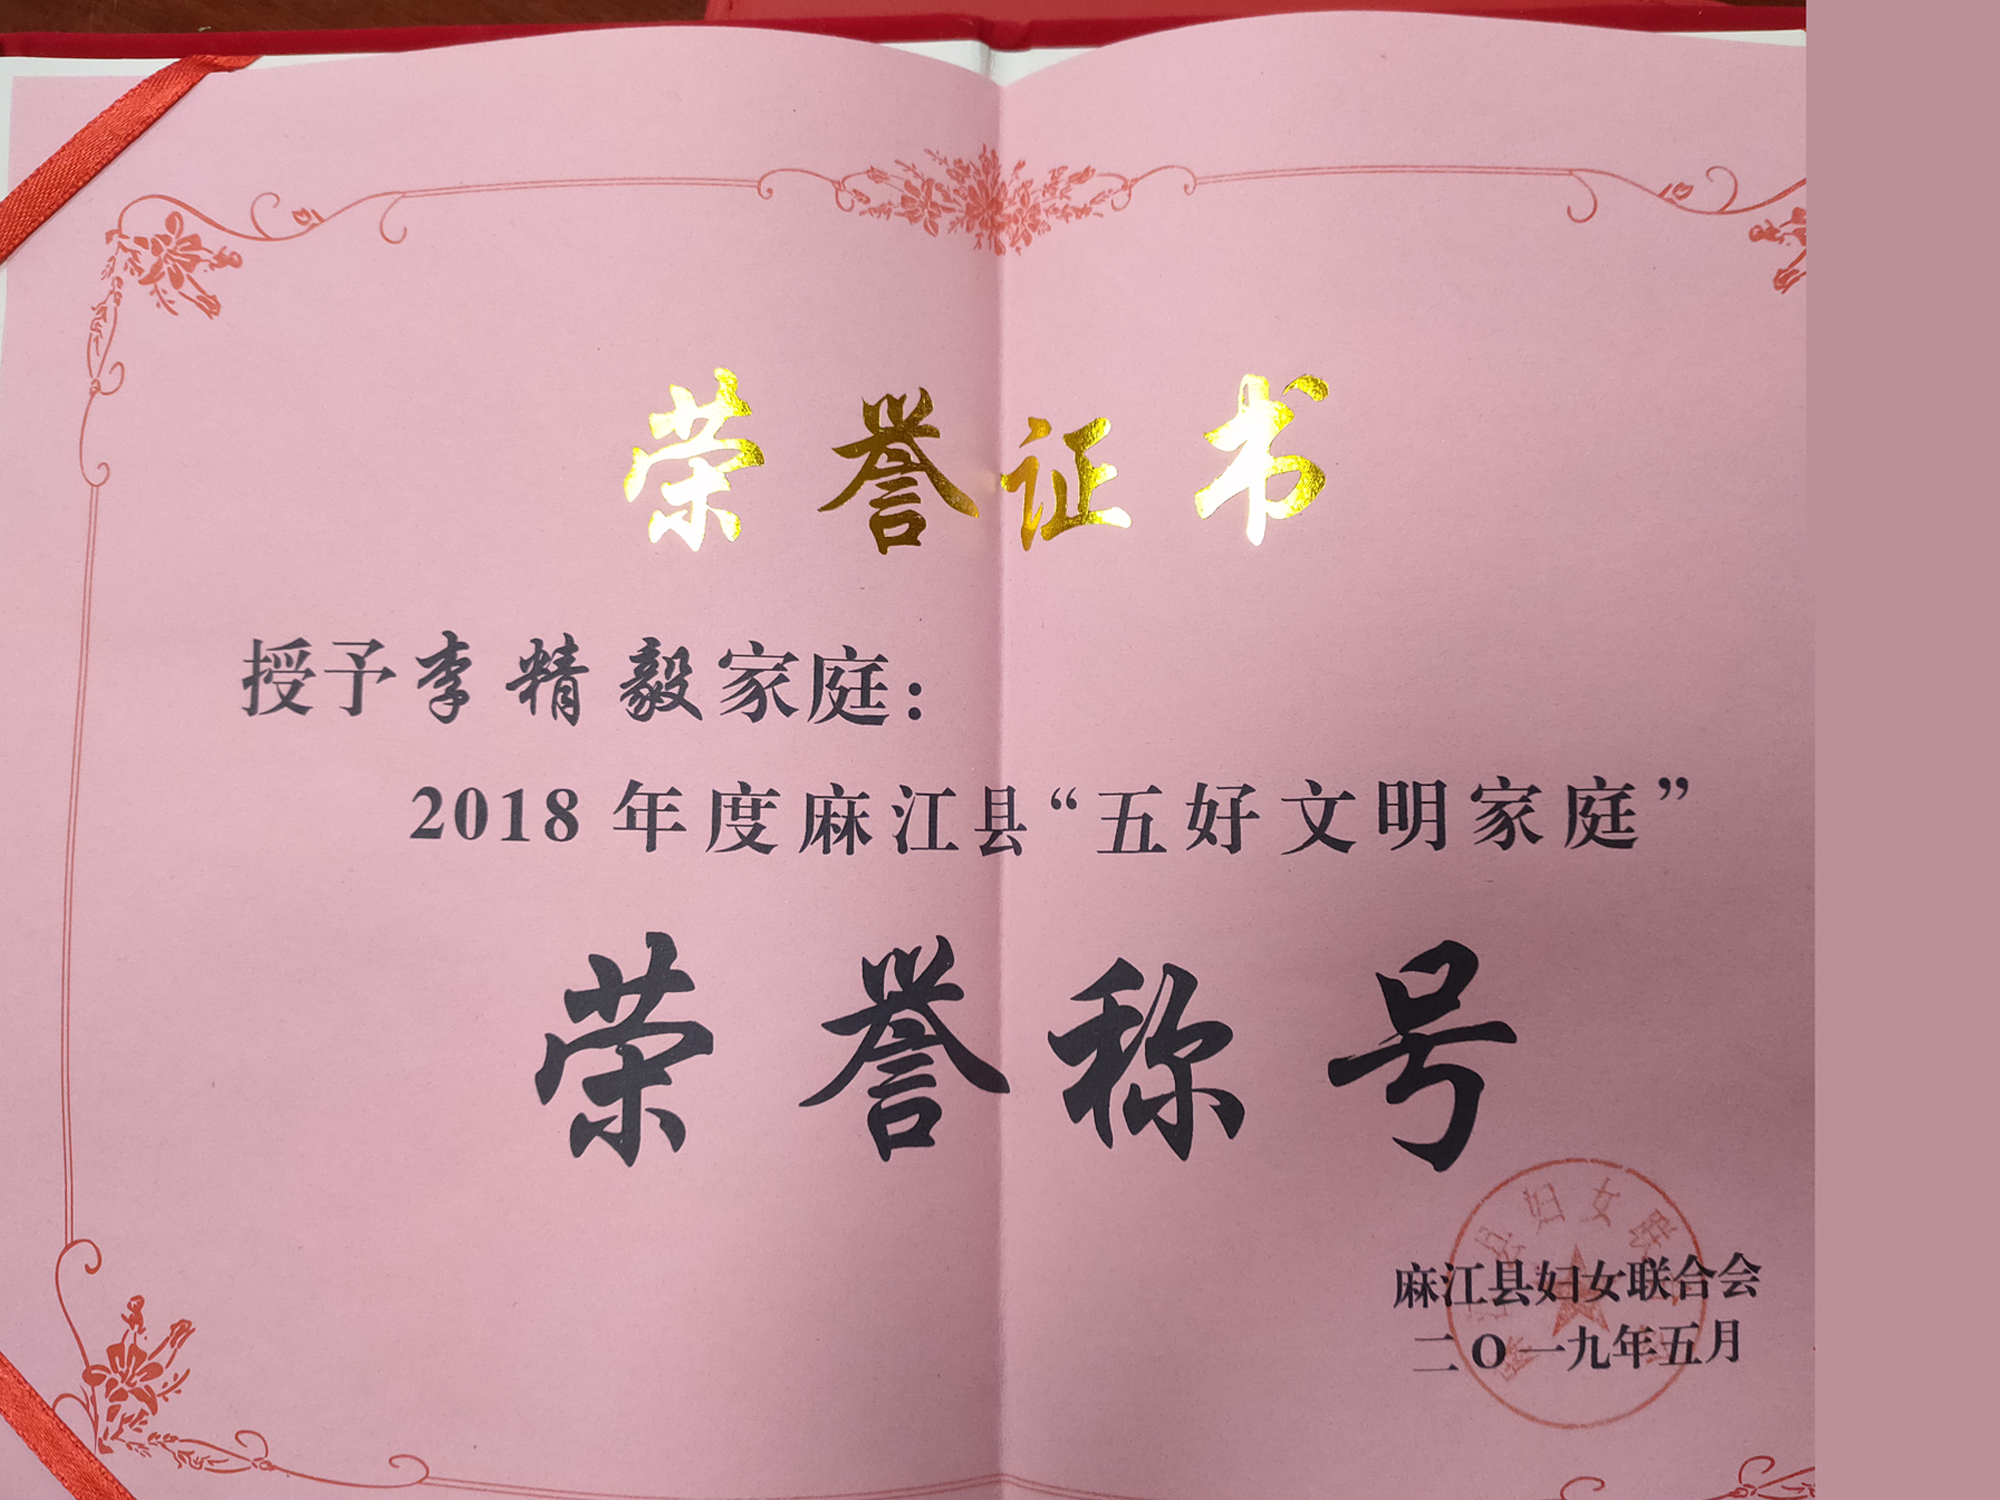 荣誉证书
授予李精毅家庭：
2018年度麻江县“五好文明家庭”
荣誉称号
县妇女联
麻江县妇女联合会
二O一九年五月